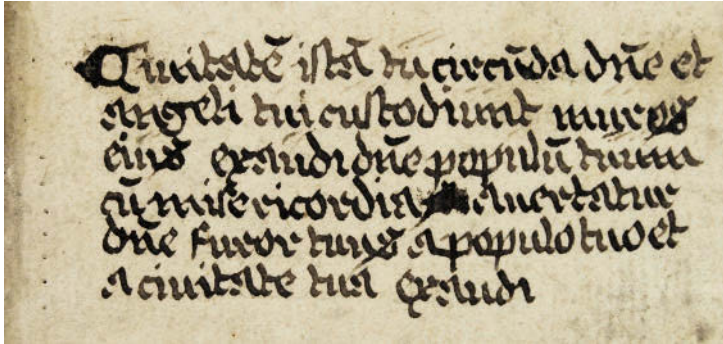 Ciuitatē istā tu circūda dn̄e et
angeli tui custodiunt muros
eius exaudi dn̄e populū tuum
cū misericordia auertatur
dn̄e furor tuus a populo tuo et
a ciuitate tua exaudi